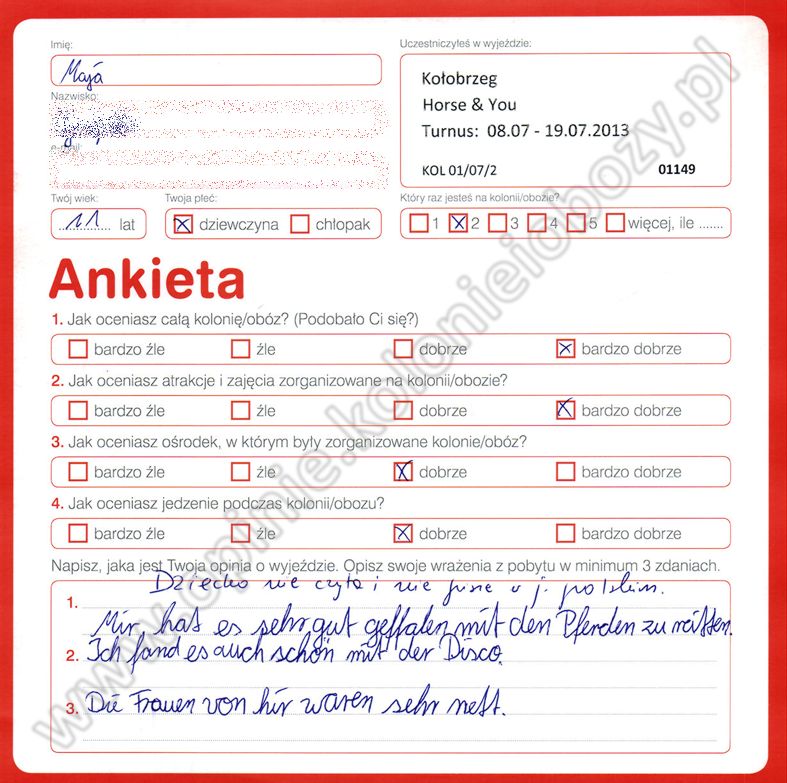 Imię:
Uczestniczyłeś w wyjeździe:
Maja
Kołobrzeg
Horse & You
Turnus: 08.07 - 19.07.2013
KOL 01/07/2 01149
Nazwisko:
e-mail:
Twój wiek:
Twoja płeć:
Który raz jesteś na kolonii/obozie?
11 lat
dziewczyna chłopak
1 2 3 4 5 więcej, ile .......
Ankieta
1. Jak oceniasz całą kolonię/obóz? (Podobało Ci się?)
bardzo źle źle dobrze bardzo dobrze
2. Jak oceniasz atrakcje i zajęcia zorganizowane na kolonii/obozie?
bardzo źle źle dobrze bardzo dobrze
3. Jak oceniasz ośrodek, w którym były zorganizowane kolonie/obóz?
bardzo źle źle dobrze bardzo dobrze
4. Jak oceniasz jedzenie podczas kolonii/obozu?
bardzo źle źle dobrze bardzo dobrze
Napisz, jaka jest Twoja opinia o wyjeździe. Opisz swoje wrażenia z pobytu w minimum 3 zdaniach.
Dziecko nie czyta i nie pisze w j. polskim.
1. Mir hat es sehr gut geffalen mit den Pferden zu reitten.
2. Ich fand es auch schön mit der Disco.
3. Die Frauen von hir waren sehr nett.
www.opinie.kolonieiobozy.pl